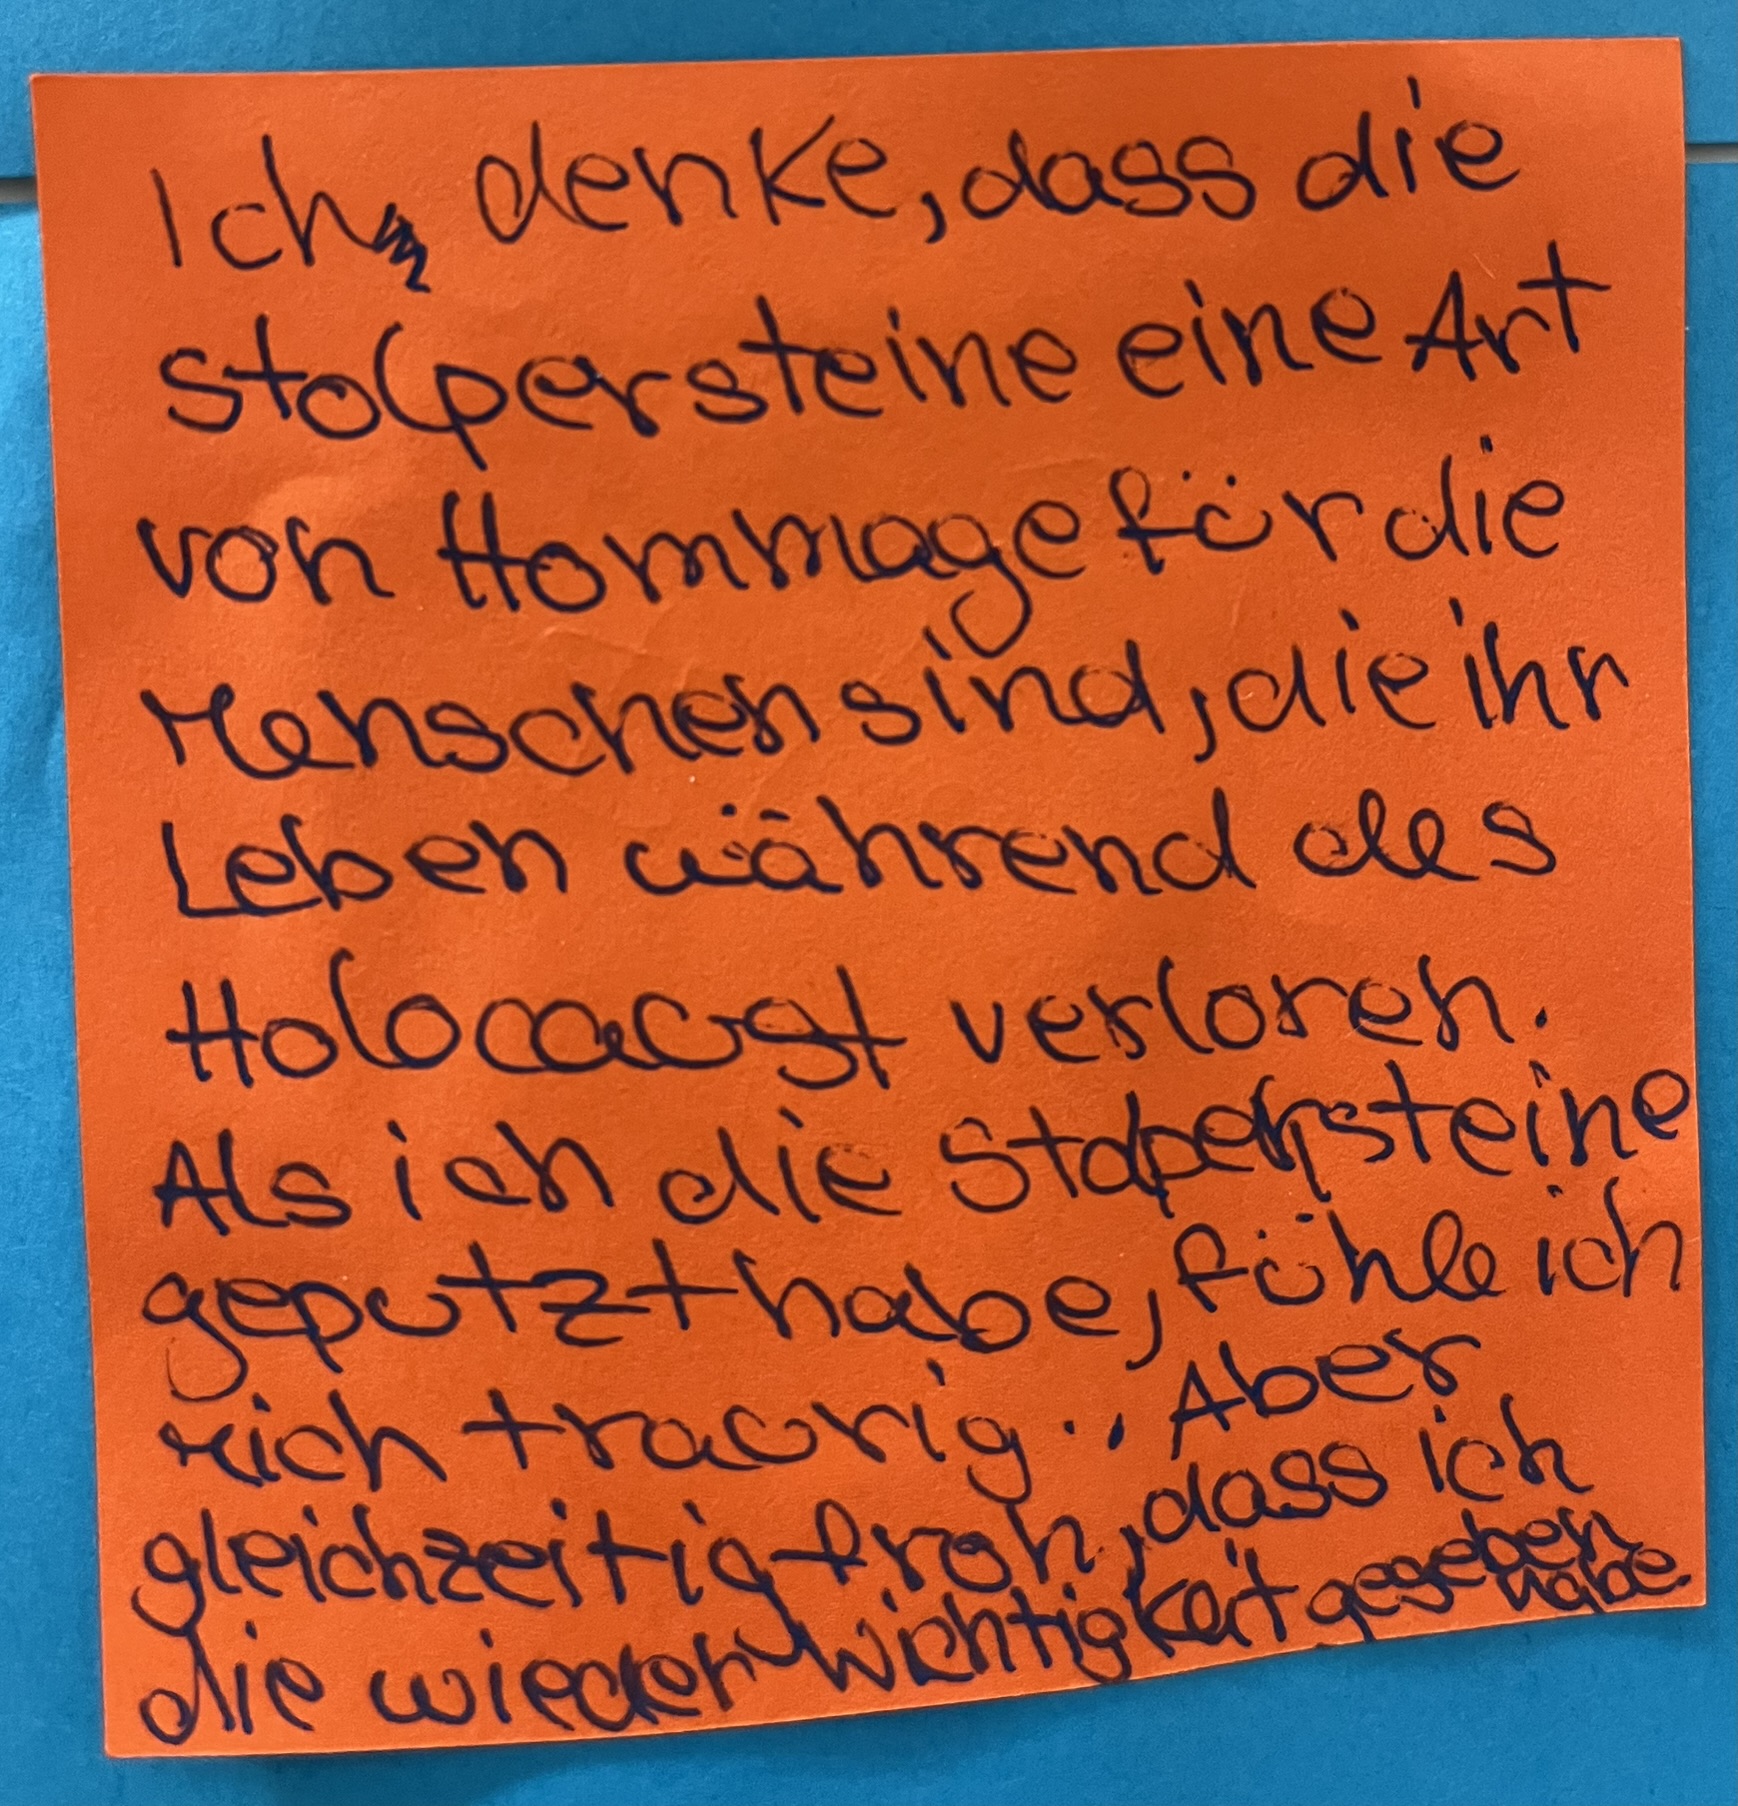 Ich denke, dass die
Stolpersteine eine Art
von Hommage für die
Menschen sind, die ihr
Leben während des
Holocaust verloren.
Als ich die Stolpersteine
geputzt habe, fühle ich
mich traurig.. Aber
gleichzeitig froh, dass ich
die wieder Wichtigkeit gegeben
habe.